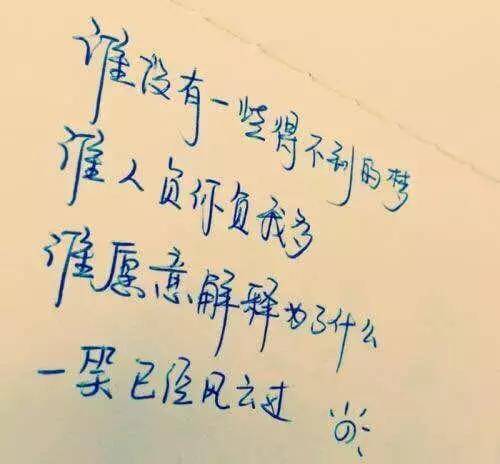 谁没有一些得不到的梦
谁人负你负我多
谁愿意解释为了什么
一笑已经风云过